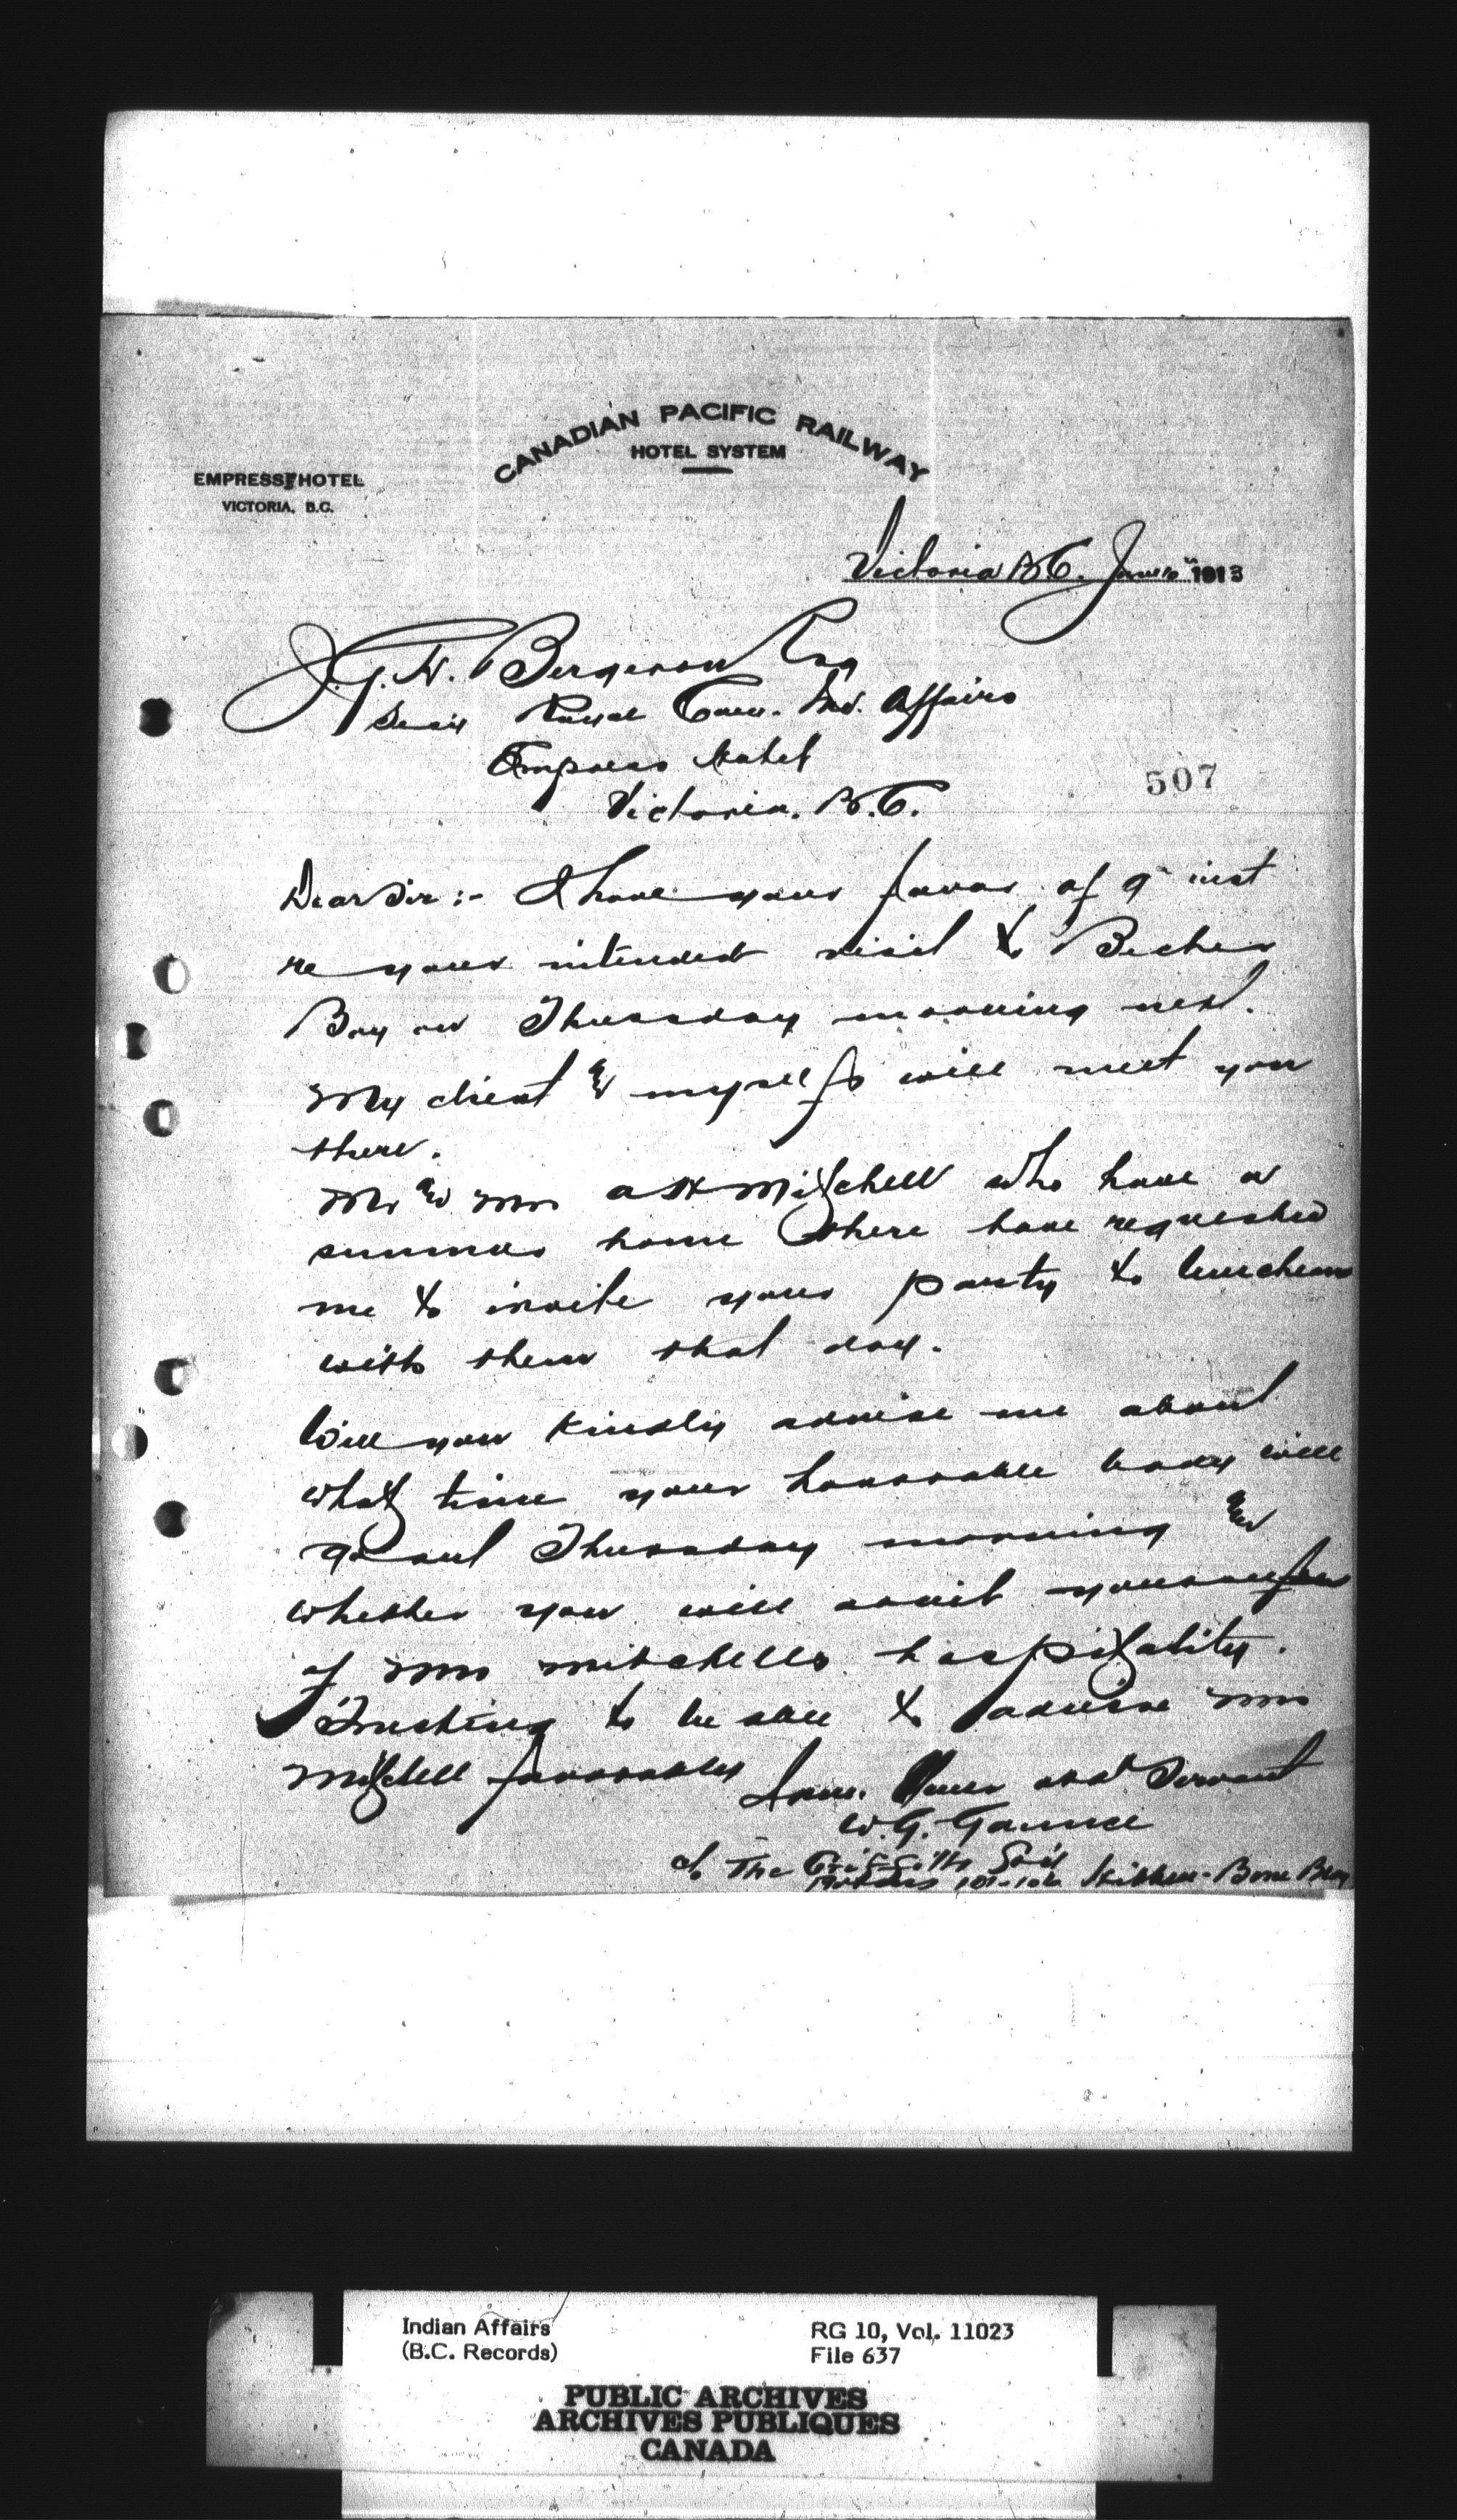 CANADIAN PACIFIC RAILWAY
HOTEL SYSTEM
EMPRESS HOTEL
VICTORIA, B.C.
Victoria B C. June 10" 1913
J. G. H. Bergeron Esq
Secy Royal Com. Ind. Affairs
Empress Hotel
507
Victoria. B.C.
Dear Sir :- I have your favor of 9" inst
re your intended visit to Becher
Bay on Thursday morning next.
My client & myself will meet you
there.
Mr & Mrs Mitchell who have a
summer home there have requested
me to invite your party to luncheon
with them that day.
Will you kindly advise me about
what time your honorable body will
go out Thursday morning &
whether you will avail yourselves
of Mrs Mitchells hospitality.
Trusting to be able to advise Mrs
Mitchell favorably
I am. Your obdt Servant
W. G. Gaunce
c/o The Griffith Co'y
101-106 Hibben-Bone Bldg
Indian Affairs
(B.C. Records)
RG 10, Vol. 11023
File 637
PUBLIC ARCHIVES
ARCHIVES PUBLIQUES
CANADA